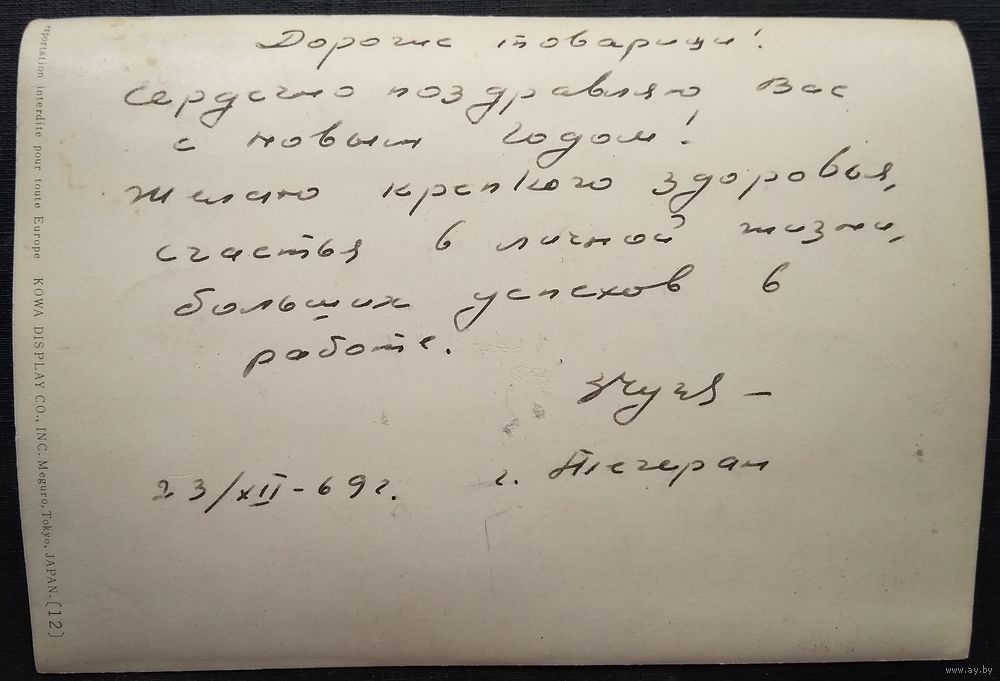 Дорогие товарищи!
Сердечно поздравляю Вас
с новым годом!
Желаю крепкого здоровья,
счастья в личной жизни,
больших успехов в
работе.
23/XII-69г. г. Тегеран
exportation interdite pour toute Europe KOWA DISPLAY CO., INC. Meguro, Tokyo, JAPAN. [12]
www.ay.by